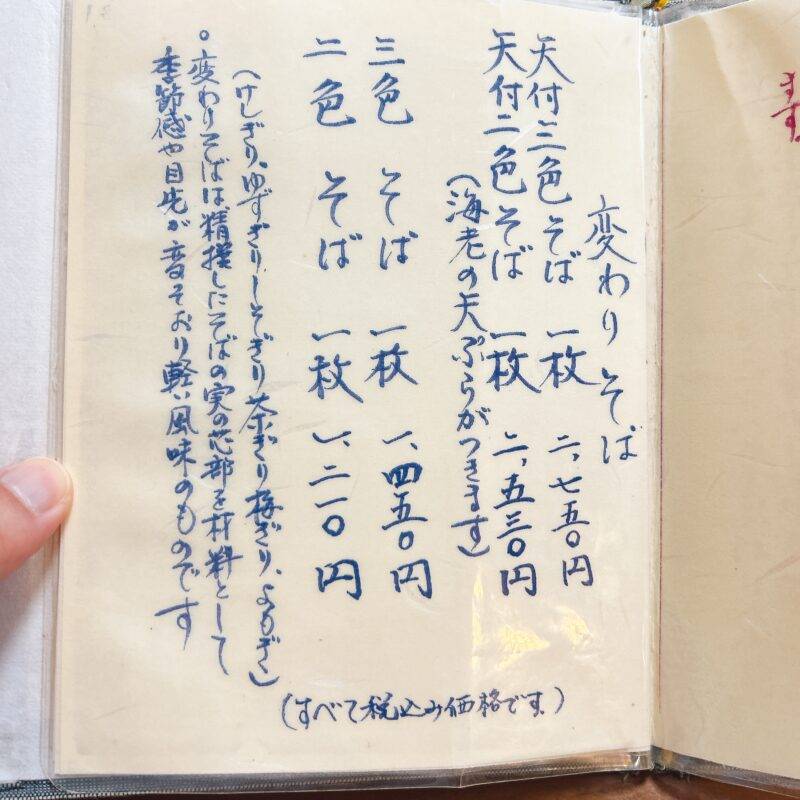 変わりそば
天付三色そば 一枚 二、七五〇円
天付二色そば 一枚 二、五三〇円
(海老の天ぷらがつきます)
三色 そば 一枚 一、四五〇円
二色 そば 一枚 一、二一〇円
(けしぎり、ゆずぎり、しそぎり 茶ぎり 梅ぎり、よもぎ)
○変わりそばは、精撰したそばの実の芯部を材料として
季節感や目先が変っており軽い風味のものです
(すべて税込み価格です。)
ます。